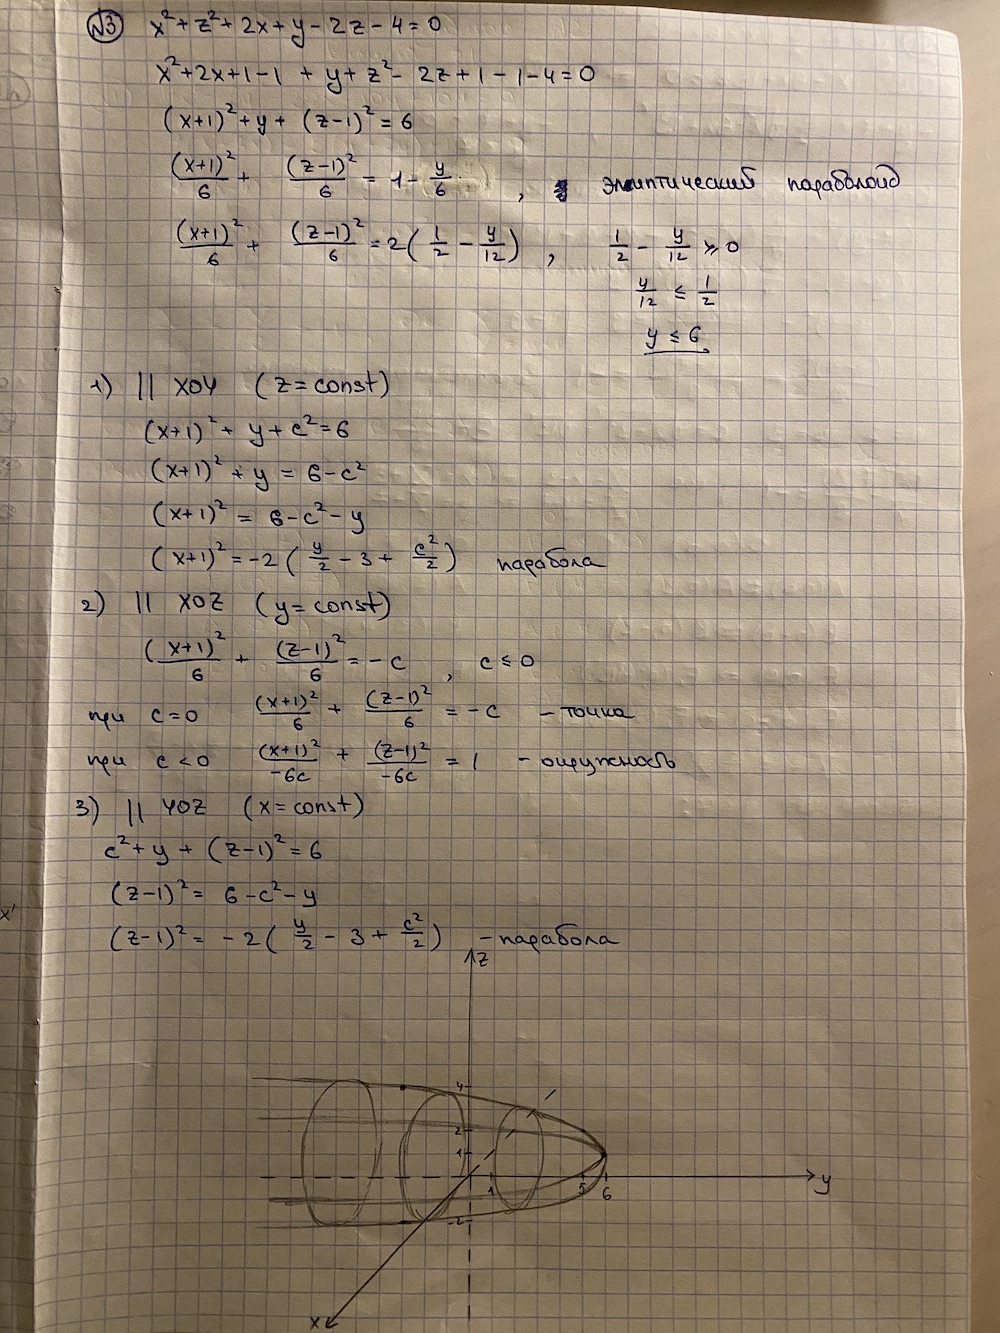 №3 x² + z² + 2x + y - 2z - 4 = 0
x² + 2x + 1 - 1 + y + z² - 2z + 1 - 1 - 4 = 0
(x+1)² + y + (z-1)² = 6
(x+1)²/6 + (z-1)²/6 = 1 - y/6 , эллиптический параболоид
(x+1)²/6 + (z-1)²/6 = 2(1/2 - y/12) , 1/2 - y/12 ≥ 0
y/12 ≤ 1/2
y ≤ 6
1) || XOY (z = const)
(x+1)² + y + c² = 6
(x+1)² + y = 6 - c²
(x+1)² = 6 - c² - y
(x+1)² = -2(y/2 - 3 + c²/2) парабола
2) || XOZ (y = const)
(x+1)²/6 + (z-1)²/6 = -c , c ≤ 0
при c = 0 (x+1)²/6 + (z-1)²/6 = -c - точка
при c < 0 (x+1)²/-6c + (z-1)²/-6c = 1 - окружность
3) || YOZ (x = const)
c² + y + (z-1)² = 6
(z-1)² = 6 - c² - y
(z-1)² = -2(y/2 - 3 + c²/2) - парабола
z
4
2
1
1 5 6 y
-2
x
x'